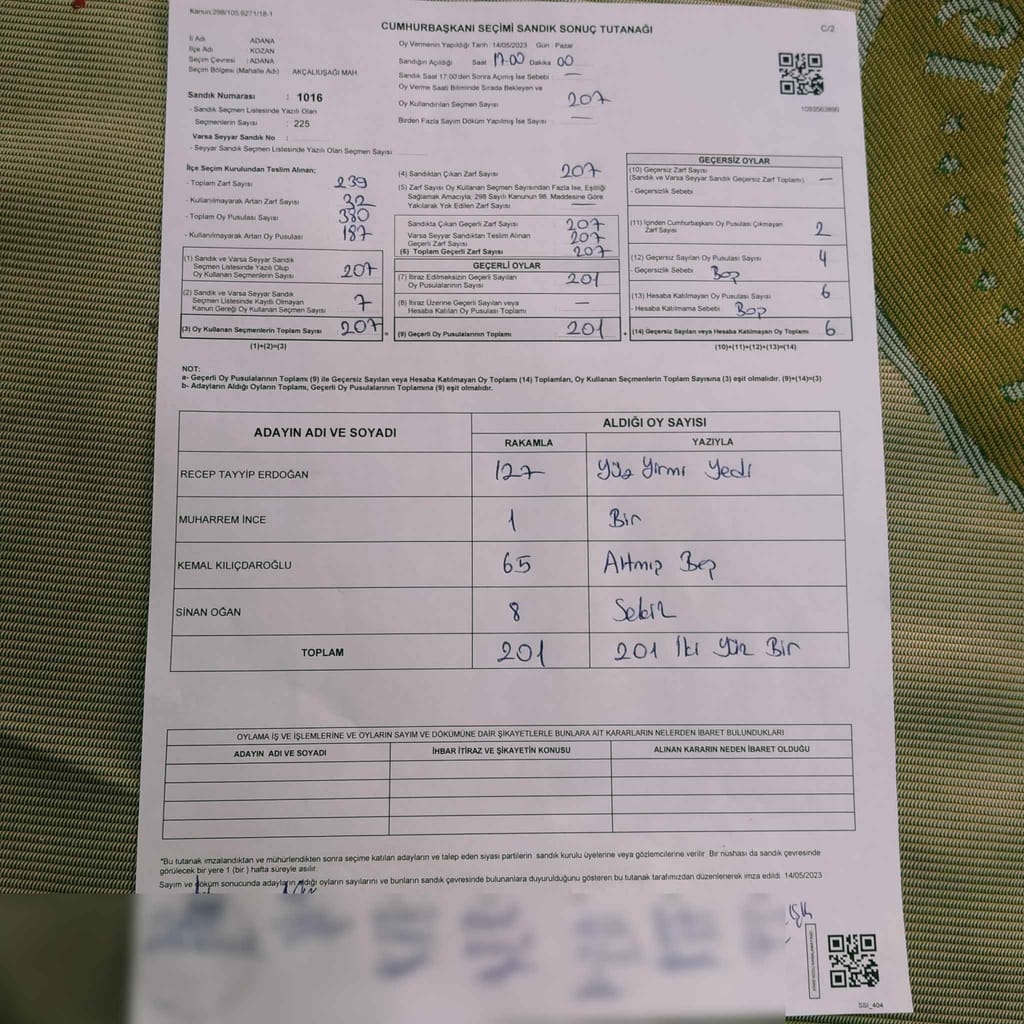 Kanun:298/105.6271/18-1
CUMHURBAŞKANI SEÇİMİ SANDIK SONUÇ TUTANAĞI
C/2
İl Adı : ADANA
İlçe Adı : KOZAN
Seçim Çevresi : ADANA
Seçim Bölgesi (Mahalle Adı) : AKÇALIUŞAĞI MAH.
Sandık Numarası : 1016
- Sandık Seçmen Listesinde Yazılı Olan
Seçmenlerin Sayısı : 225
Varsa Seyyar Sandık No :
- Seyyar Sandık Seçmen Listesinde Yazılı Olan Seçmen Sayısı
Oy Vermenin Yapıldığı Tarih :14/05/2023 Gün : Pazar
Sandığın Açıldığı Saat 17.00 Dakika 00
Sandık Saat 17:00'den Sonra Açımış İse Sebebi —
Oy Verme Saati Bitiminde Sırada Bekleyen ve
Oy Kullandırılan Seçmen Sayısı 207
Birden Fazla Sayım Döküm Yapılmış İse Sayısı —
1093563890
İlçe Seçim Kurulundan Teslim Alınan;
- Toplam Zarf Sayısı 239
- Kullanılmayarak Artan Zarf Sayısı 32
- Toplam Oy Pusulası Sayısı 380
- Kullanılmayarak Artan Oy Pusulası 187
(1) Sandık ve Varsa Seyyar Sandık
Seçmen Listesinde Yazılı Olup
Oy Kullanan Seçmenlerin Sayısı 207
(2) Sandık ve Varsa Seyyar Sandık
Seçmen Listesinde Kayıtlı Olmayan
Kanun Gereği Oy Kullanan Seçmen Sayısı 7
(3) Oy Kullanan Seçmenlerin Toplam Sayısı 207 =
(1)+(2)=(3)
(4) Sandıktan Çıkan Zarf Sayısı 207
(5) Zarf Sayısı Oy Kullanan Seçmen Sayısından Fazla İse, Eşitliği
Sağlamak Amacıyla, 298 Sayılı Kanunun 98. Maddesine Göre
Yakılarak Yok Edilen Zarf Sayısı —
Sandıkta Çıkan Geçerli Zarf Sayısı 207
Varsa Seyyar Sandıktan Teslim Alınan
Geçerli Zarf Sayısı 207
(6) Toplam Geçerli Zarf Sayısı 207
GEÇERLİ OYLAR
(7) İtiraz Edilmeksizin Geçerli Sayılan
Oy Pusulalarının Sayısı 201
(8) İtiraz Üzerine Geçerli Sayılan veya
Hesaba Katılan Oy Pusulası Toplamı —
(9) Geçerli Oy Pusulalarının Toplamı 201 +
GEÇERSİZ OYLAR
(10) Geçersiz Zarf Sayısı
(Sandık ve Varsa Seyyar Sandık Geçersiz Zarf Toplamı) —
- Geçersizlik Sebebi
(11) İçinden Cumhurbaşkanı Oy Pusulası Çıkmayan
Zarf Sayısı 2
(12) Geçersiz Sayılan Oy Pusulası Sayısı 4
- Geçersizlik Sebebi Boş
(13) Hesaba Katılmayan Oy Pusulası Sayısı 6
- Hesaba Katılmama Sebebi Boş
(14) Geçersiz Sayılan veya Hesaba Katılmayan Oy Toplamı 6
(10)+(11)+(12)+(13)=(14)
NOT:
a- Geçerli Oy Pusulalarının Toplamı (9) ile Geçersiz Sayılan veya Hesaba Katılmayan Oy Toplamı (14) Toplamları, Oy Kullanan Seçmenlerin Toplam Sayısına (3) eşit olmalıdır. (9)+(14)=(3)
b- Adayların Aldığı Oyların Toplamı, Geçerli Oy Pusulalarının Toplamına (9) eşit olmalıdır.
ADAYIN ADI VE SOYADI
ALDIĞI OY SAYISI
RAKAMLA YAZIYLA
RECEP TAYYİP ERDOĞAN 127 Yüz Yirmi Yedi
MUHARREM İNCE 1 Bir
KEMAL KILIÇDAROĞLU 65 Altmış Beş
SİNAN OĞAN 8 Sekiz
TOPLAM 201 201 İki Yüz Bir
OYLAMA İŞ VE İŞLEMLERİNE VE OYLARIN SAYIM VE DÖKÜMÜNE DAİR ŞİKAYETLERLE BUNLARA AİT KARARLARIN NELERDEN İBARET BULUNDUKLARI
ADAYIN ADI VE SOYADI İHBAR İTİRAZ VE ŞİKAYETİN KONUSU ALINAN KARARIN NEDEN İBARET OLDUĞU
*Bu tutanak imzalandıktan ve mühürlendikten sonra seçime katılan adayların ve talep eden siyasi partilerin sandık kurulu üyelerine veya gözlemcilerine verilir. Bir nüshası da sandık çevresinde
görülecek bir yere 1 (bir ) hafta süreyle asılır.
Sayım ve döküm sonucunda adayların aldığı oyların sayılarını ve bunların sandık çevresinde bulunanlara duyurulduğunu gösteren bu tutanak tarafımızdan düzenlenerek imza edildi. 14/05/2023
SSI_404